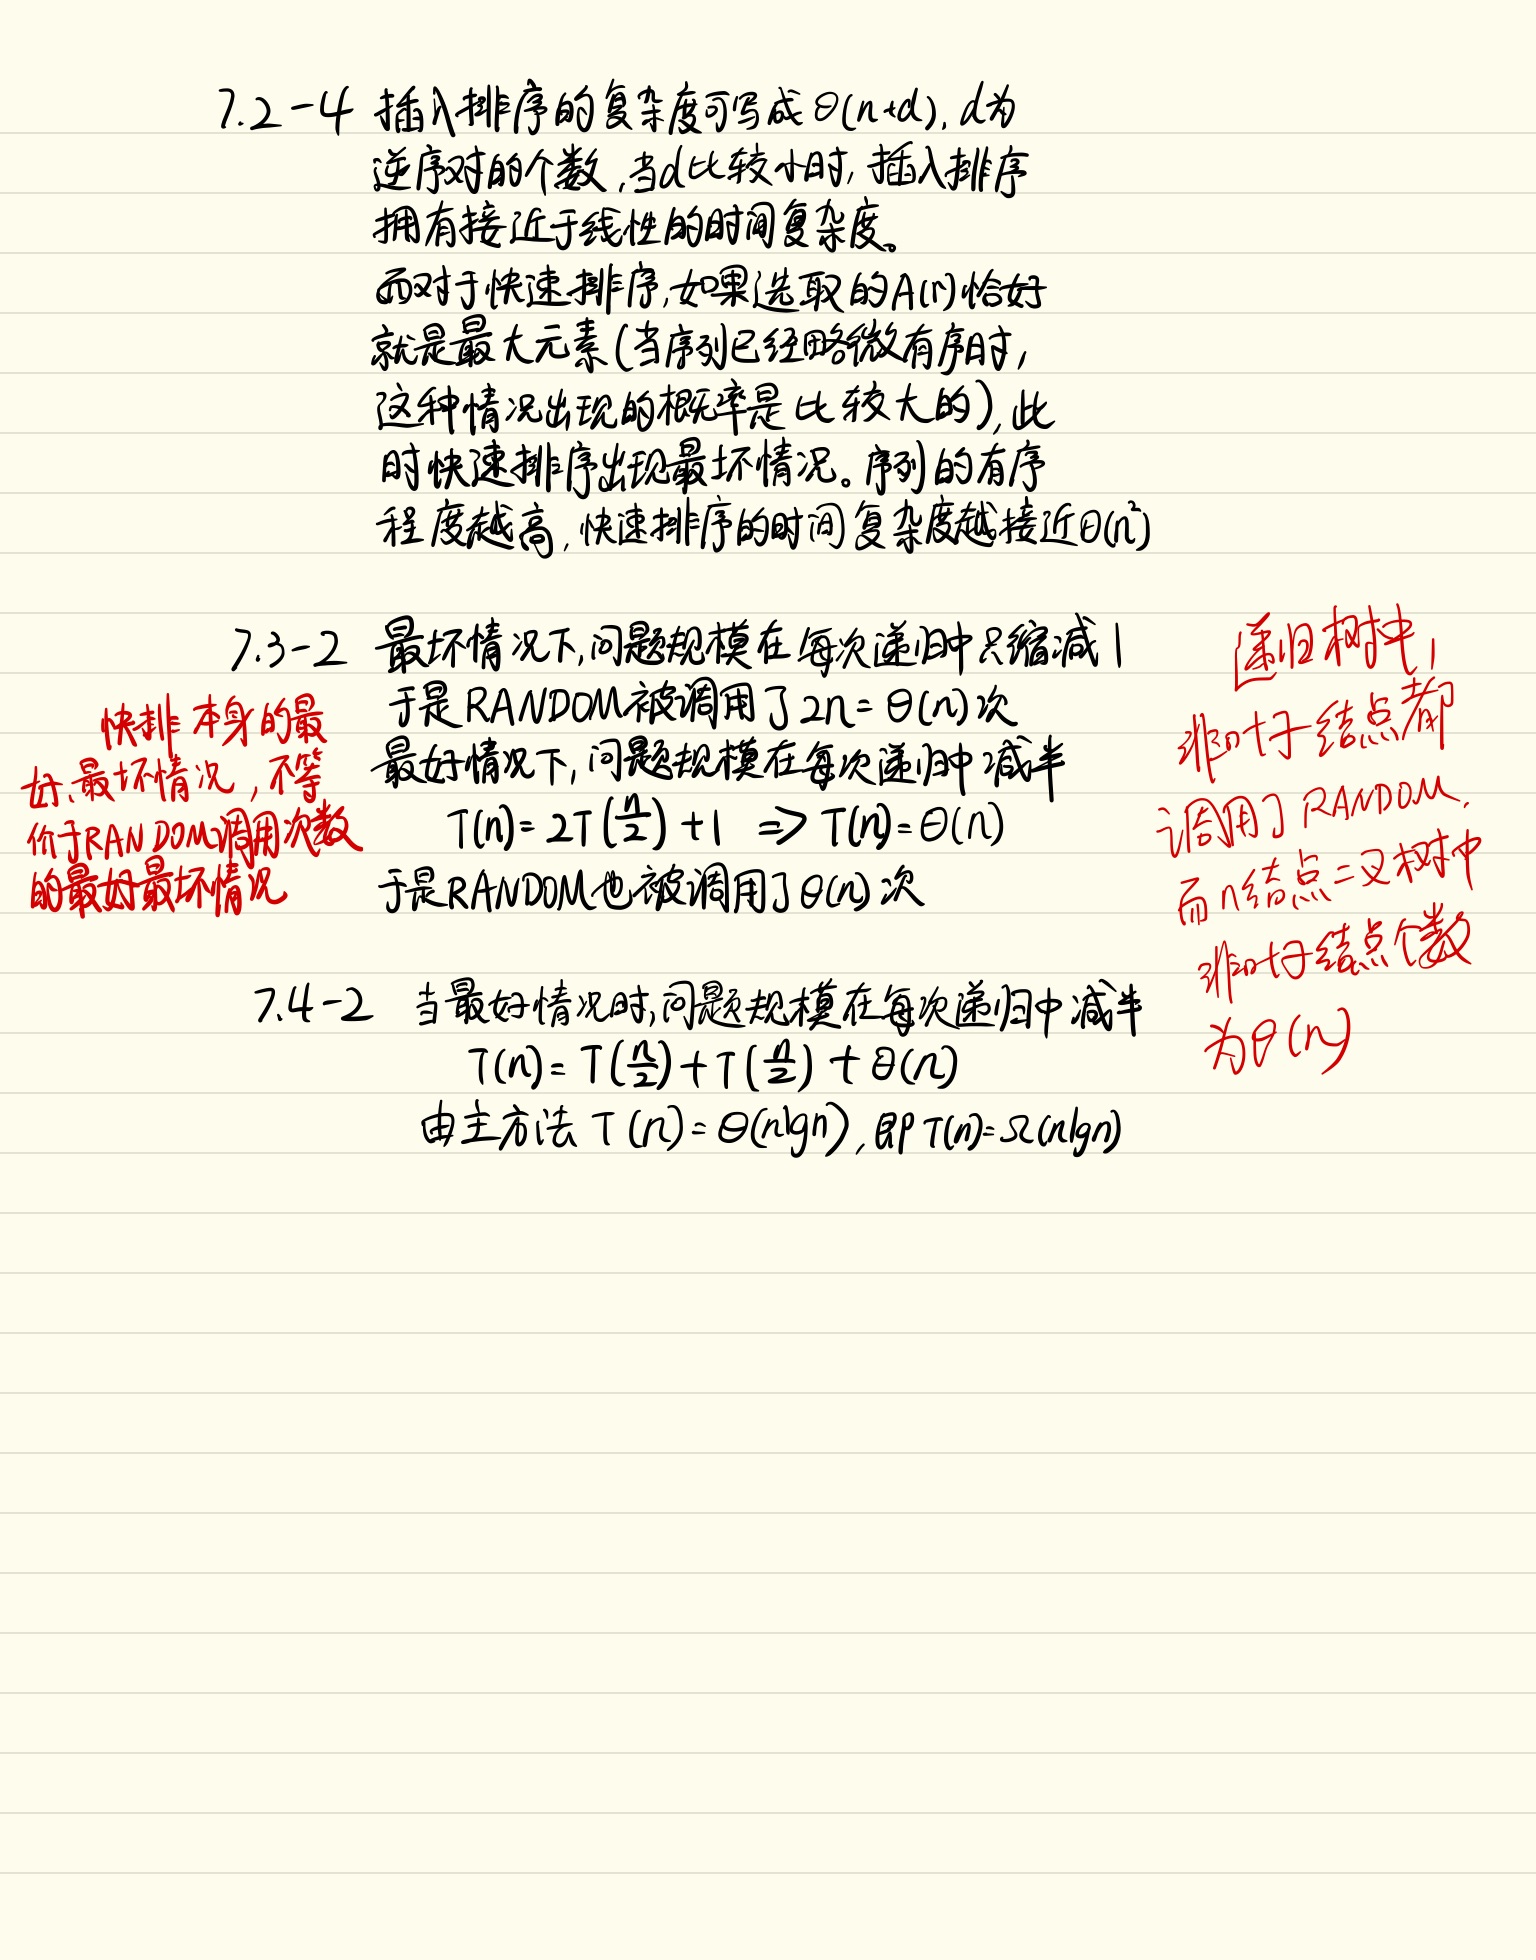 7.2-4 插入排序的复杂度可写成 θ(n+d), d为
逆序对的个数,当d比较小时,插入排序
拥有接近于线性的时间复杂度。
而对于快速排序,如果选取的A(r)恰好
就是最大元素(当序列已经略微有序时,
这种情况出现的概率是比较大的),此
时快速排序出现最坏情况。序列的有序
程度越高,快速排序的时间复杂度越接近θ(n²)
7.3-2 最坏情况下,问题规模在每次递归中只缩减1
于是RANDOM被调用了2n=θ(n)次
最好情况下,问题规模在每次递归中减半
T(n)=2T(n/2)+1 => T(n)=θ(n)
于是RANDOM也被调用了θ(n)次
快排本身的最
好、最坏情况,不等
价于RANDOM调用次数
的最好最坏情况
递归树中,
非叶子结点都
调用了RANDOM.
而n结点二叉树中
非叶子结点个数
为θ(n)
7.4-2 当最好情况时,问题规模在每次递归中减半
T(n)=T(n/2)+T(n/2)+θ(n)
由主方法 T(n)=θ(nlgn),即T(n)=Ω(nlgn)